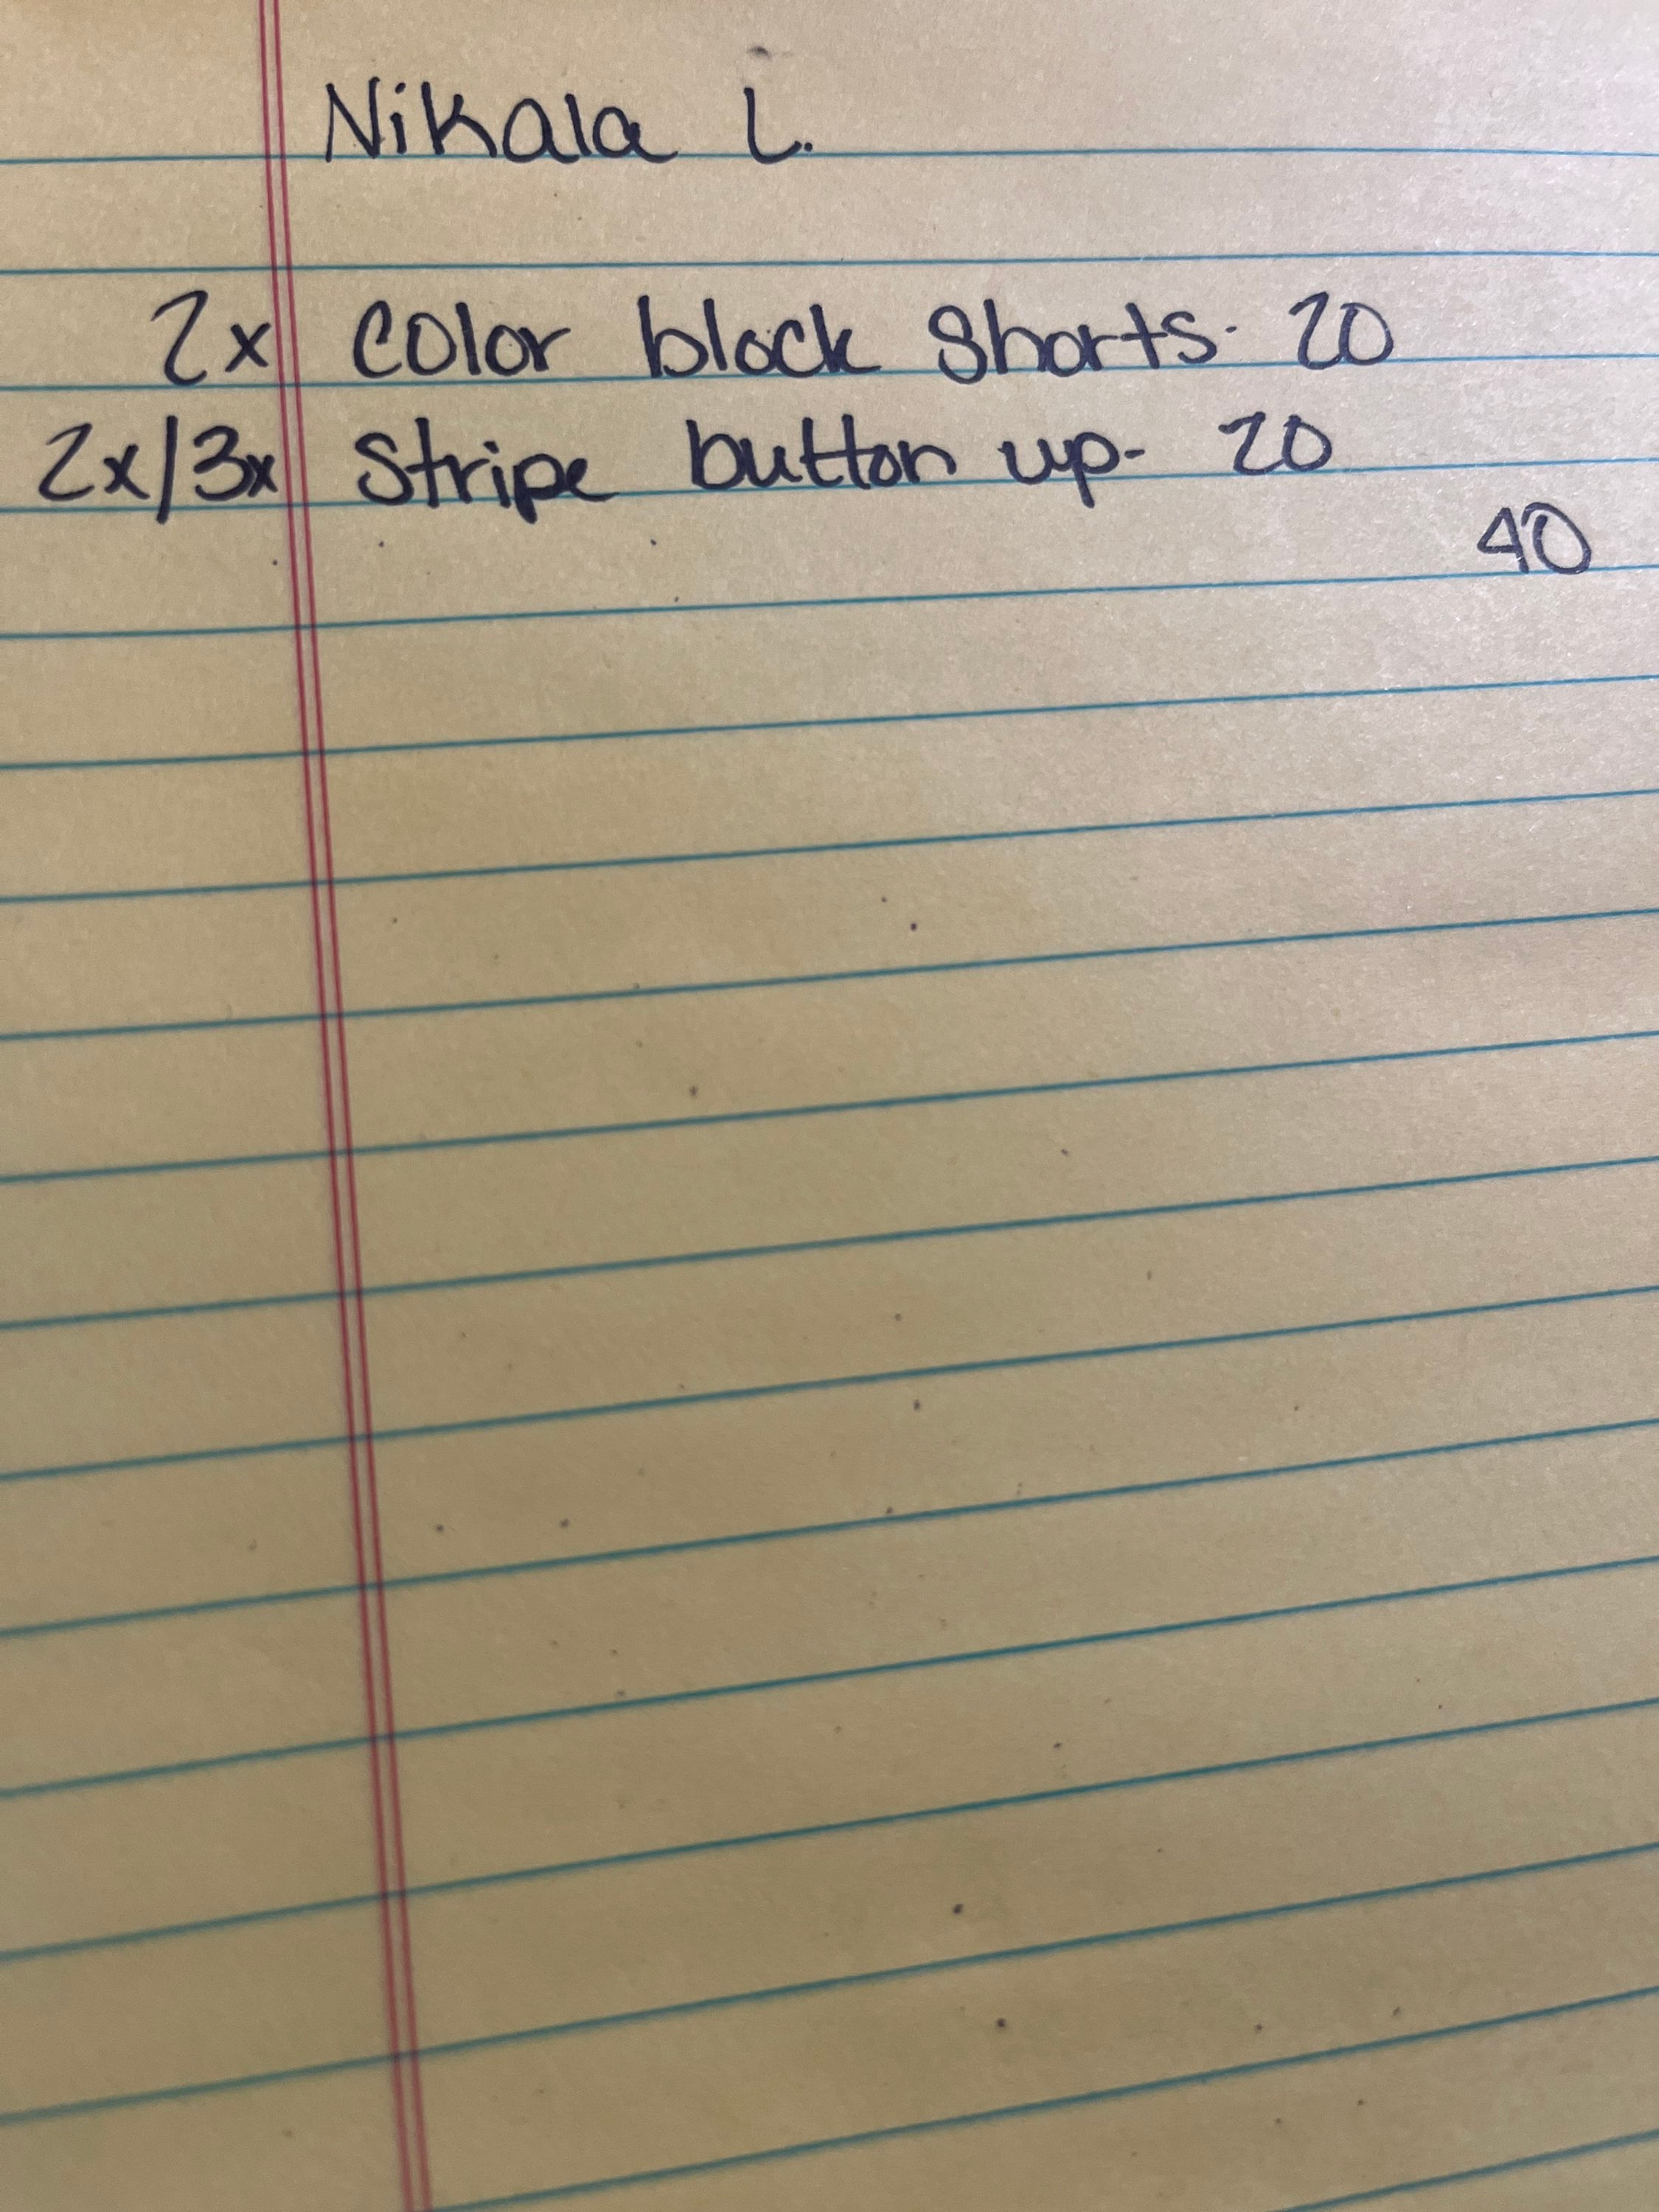 Nikala L.
2x color block shorts- 20
2x/3x Stripe button up- 20
40